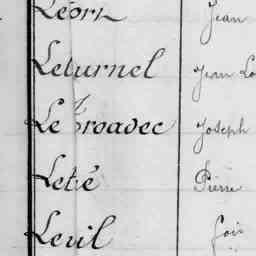 Léon Jean
Leturnel Jean Lo
Le Troadec Joseph
Letié Pierre
Leuil fois